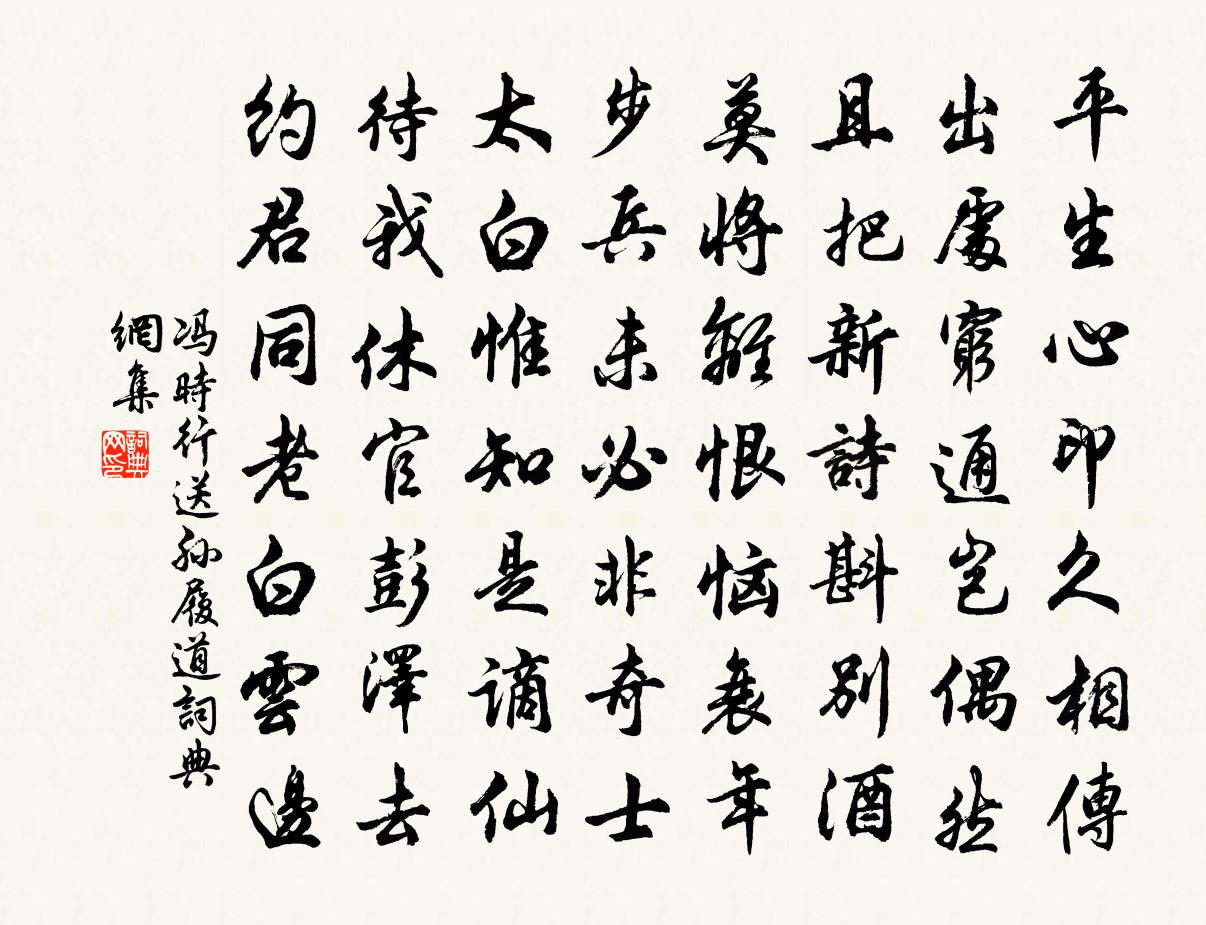 平生心印久相傳
出處窮通豈偶然
且把新詩斟別酒
莫將離恨惱衰年
步兵未必非奇士
太白惟知是謫仙
待我休官彭澤去
約君同老白雲邊
冯時行送孙履道詞典
網集
詞典
网印